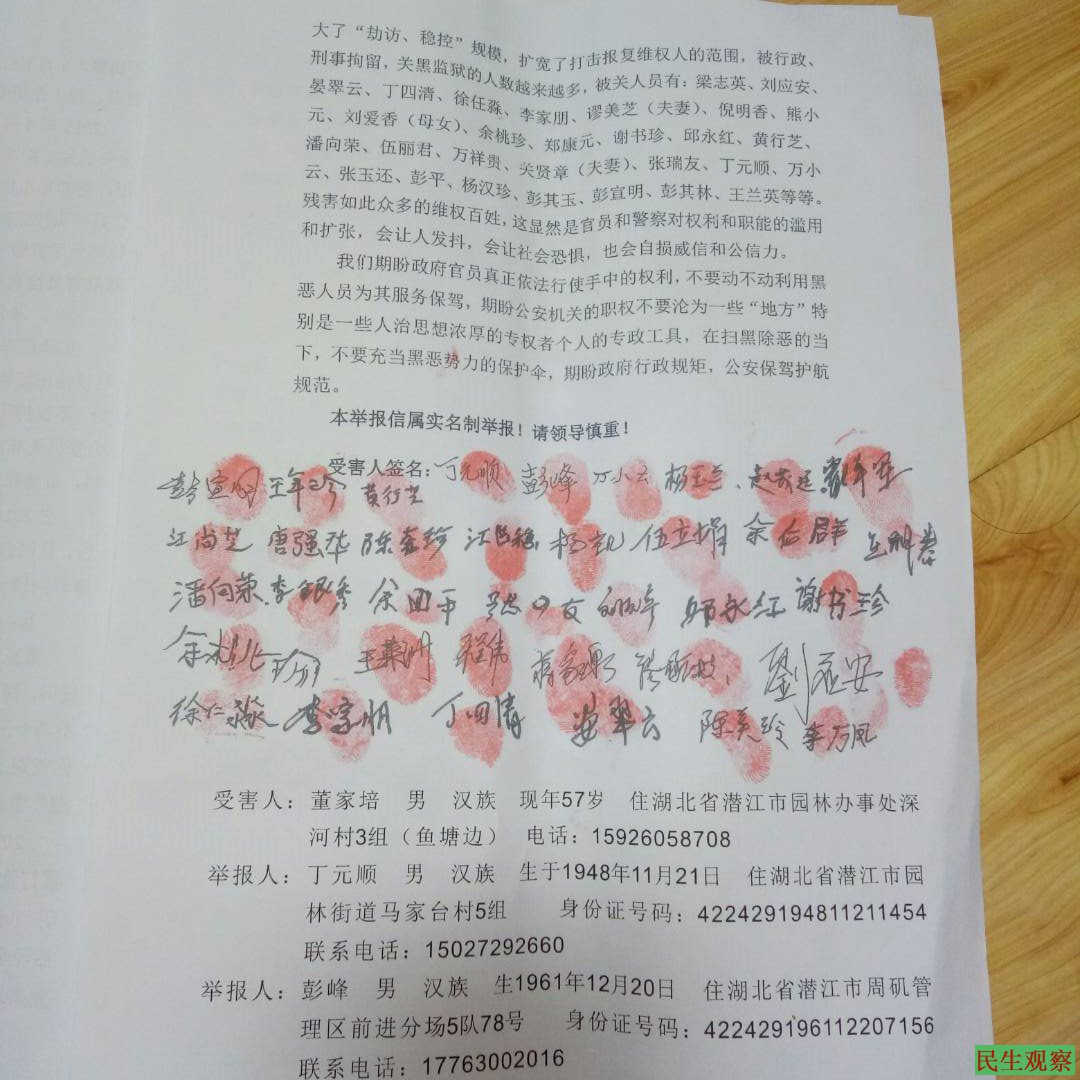 大了“劫访、稳控”规模，扩宽了打击报复维权人的范围，被行政、
刑事拘留，关黑监狱的人数越来越多，被关人员有：梁志英、刘应安、
晏翠云、丁四清、徐任淼、李家朋、谬美芝（夫妻）、倪明香、熊小
元、刘爱香（母女）、余桃珍、郑康元、谢书珍、邱永红、黄行芝、
潘向荣、伍丽君、万祥贵、关贤章（夫妻）、张瑞友、丁元顺、万小
云、张玉还、彭平、杨汉珍、彭其玉、彭宣明、彭其林、王兰英等等。
残害如此众多的维权百姓，这显然是官员和警察对权利和职能的滥用
和扩张，会让人发抖，会让社会恐惧，也会自损威信和公信力。
我们期盼政府官员真正依法行使手中的权利，不要动不动利用黑
恶人员为其服务保驾，期盼公安机关的职权不要沦为一些“地方”特
别是一些人治思想浓厚的专权者个人的专政工具，在扫黑除恶的当
下，不要充当黑恶势力的保护伞，期盼政府行政规矩，公安保驾护航
规范。
本举报信属实名制举报！请领导慎重！
受害人签名：丁元顺 彭峰 万小云 杨玉兰
彭宣明 王年珍 黄行芝
江尚芝 唐强华 余仁群
潘向荣 李银秀 余四平 谢书珍
刘应安
徐仁淼 李家朋 丁四清 晏翠云 陈美玲 李万凤
受害人：董家培 男 汉族 现年57岁 住湖北省潜江市园林办事处深
河村3组（鱼塘边） 电话：15926058708
举报人：丁元顺 男 汉族 生于1948年11月21日 住湖北省潜江市园
林街道马家台村5组 身份证号码：422429194811211454
联系电话：15027292660
举报人：彭峰 男 汉族 生1961年12月20日 住湖北省潜江市周矶管
理区前进分场5队78号 身份证号码：422429196112207156
联系电话：17763002016
民生观察